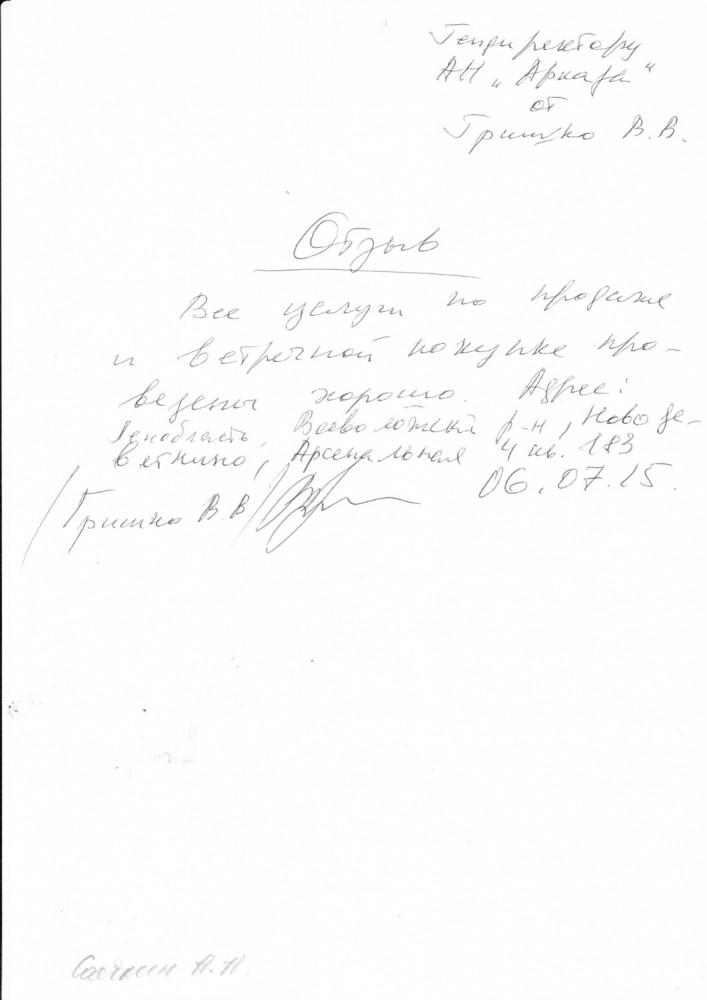 Гендиректору
АН „Аркада“
от
Гришко В.В.
Отзыв
Все услуги по продаже
и встречной покупке про-
ведены хорошо. Адрес:
Ленобласть, Всеволожский р-н, Новоде-
вяткино, Арсенальная 4 кв. 183
06.07.15.
/Гришко В.В/